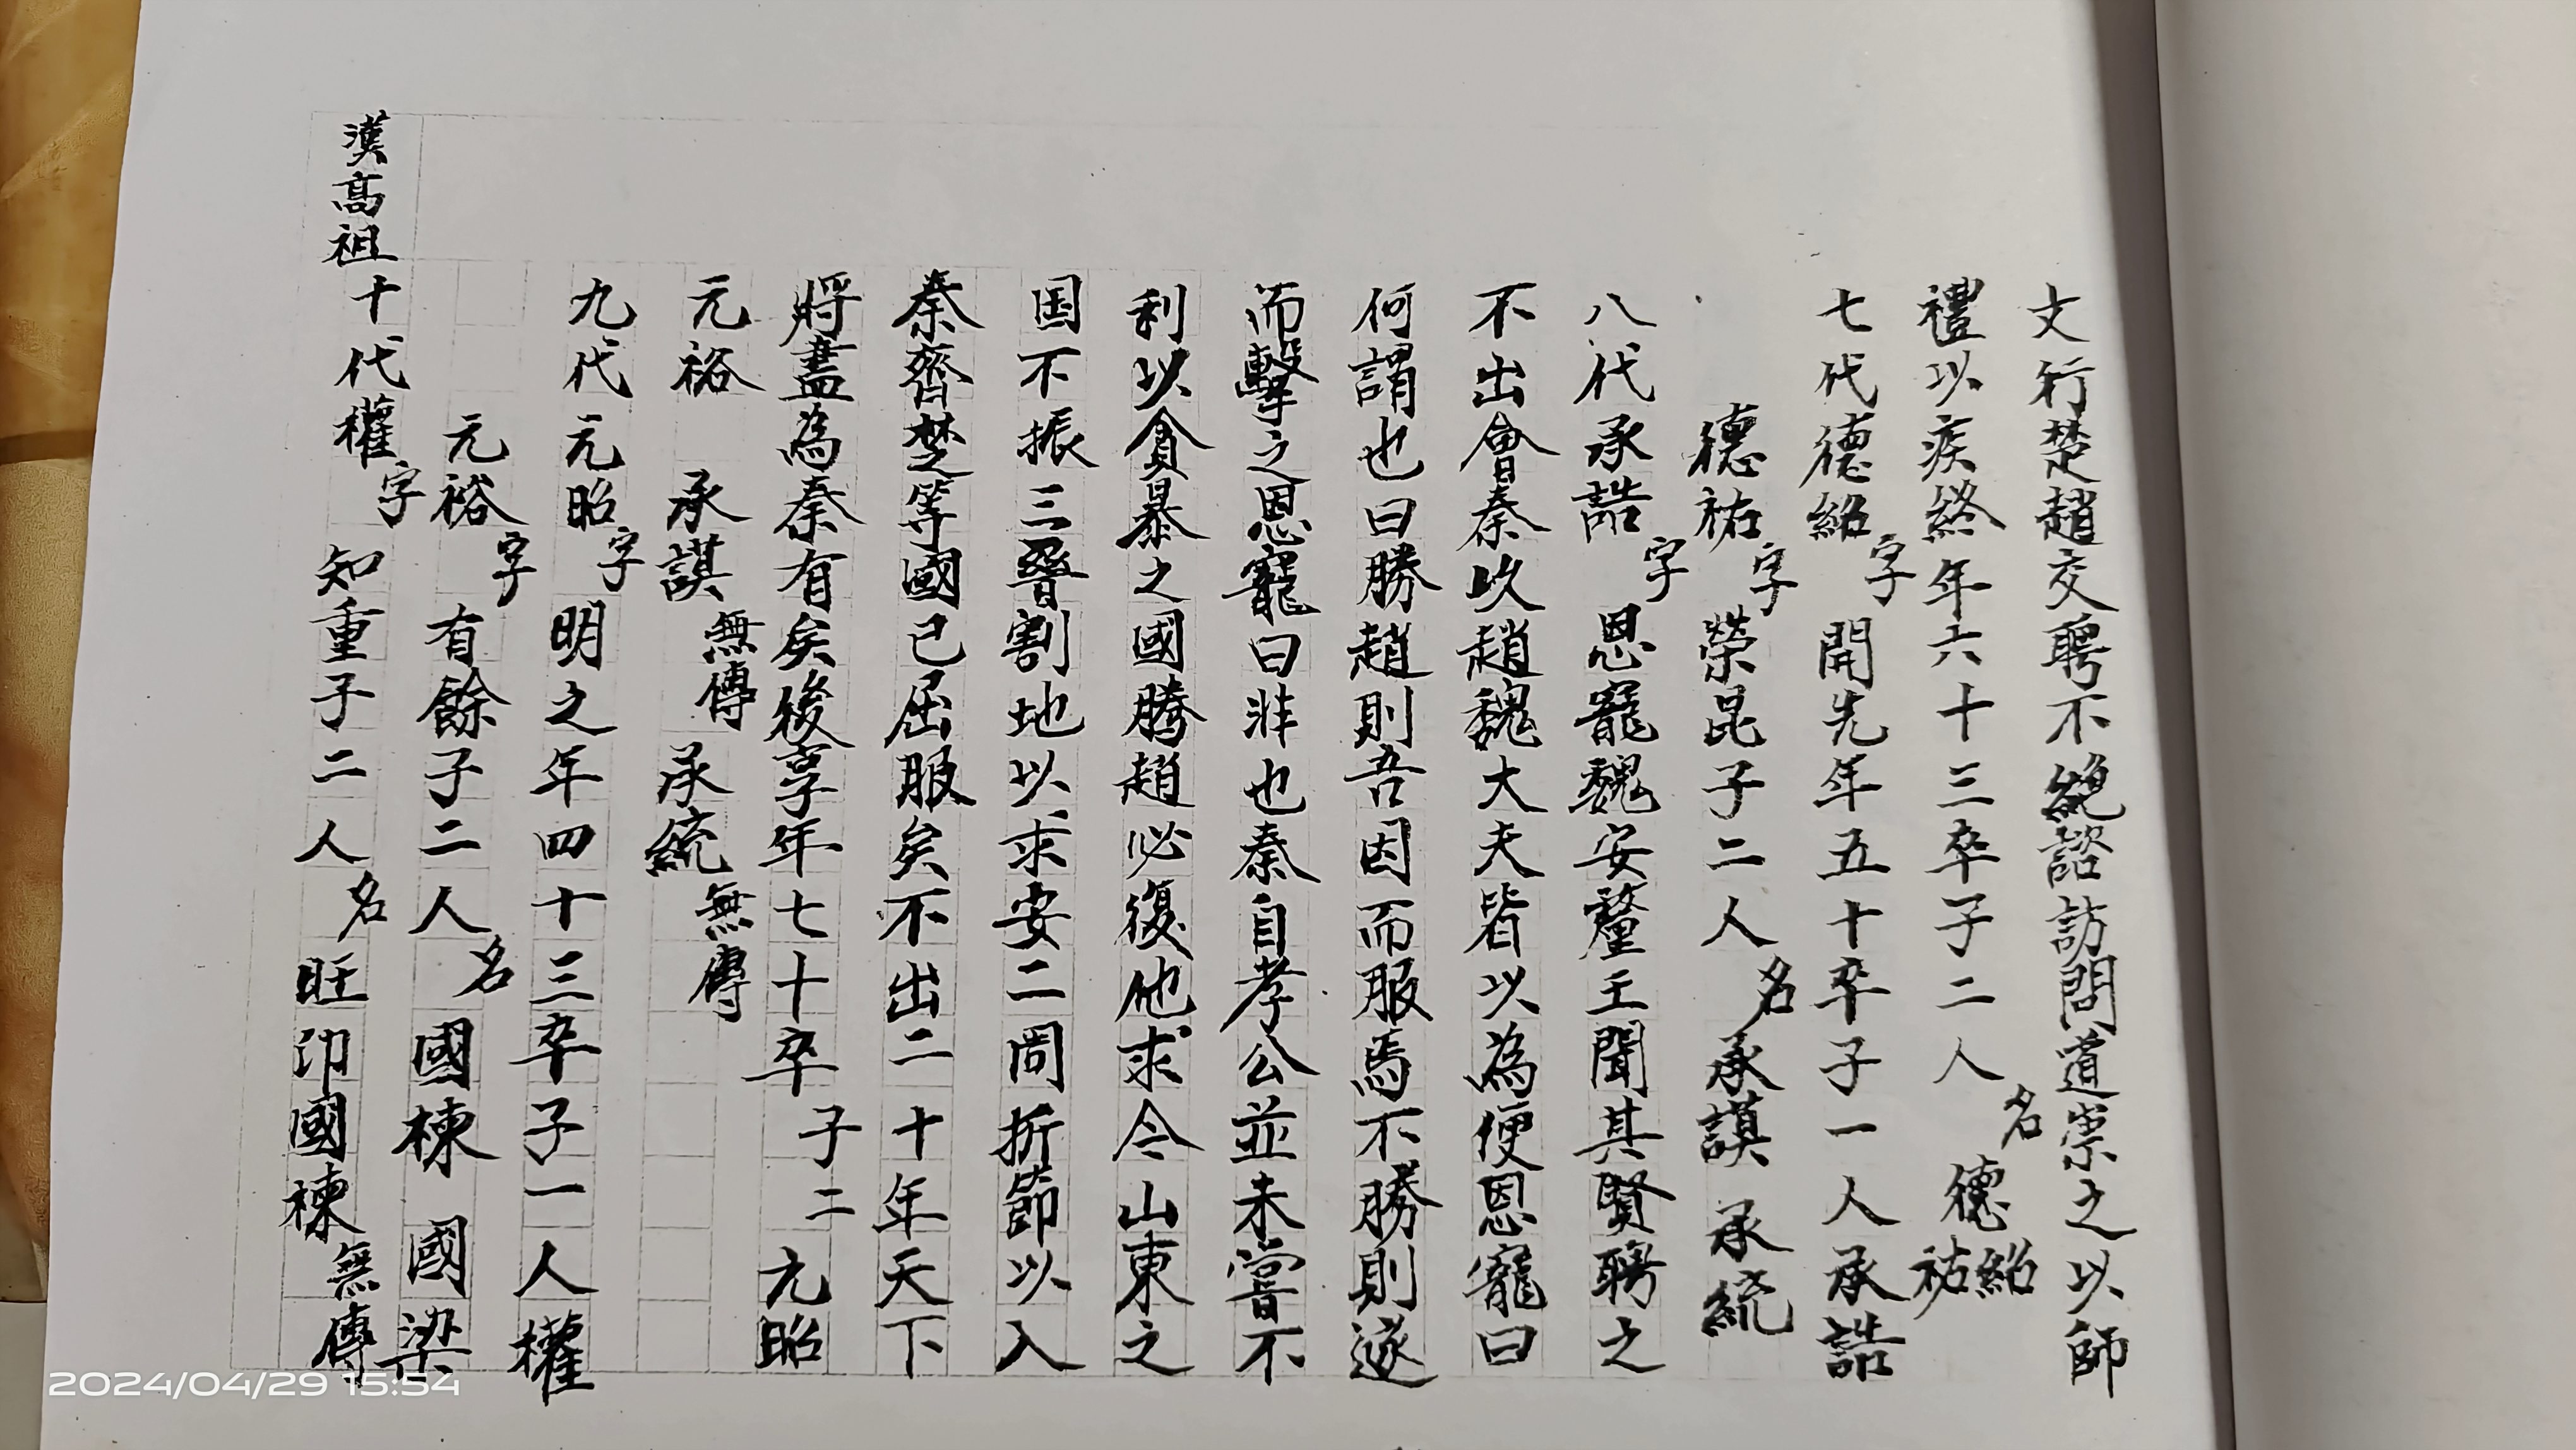 文行楚趙交聘不絕諮訪問道崇之以師
禮以疾終年六十三卒子二人名德紹德祐
七代德紹字開先年五十卒子一人承誥
德祐字榮昆子二人名承謨承統
八代承誥字恩寵魏安釐王聞其賢聘之
不出會秦攻趙魏大夫皆以為便恩寵曰
何謂也曰勝趙則吾因而服焉不勝則遂
而擊之恩寵曰非也秦自孝公並未嘗不
利以貪暴之國勝趙必復他求今山東之
国不振三晉割地以求安二周折節以入
秦齊楚等國已屈服矣不出二十年天下
將盡為秦有矣後享年七十卒子二元昭
元裕承謨無傳承統無傳
九代元昭字明之年四十三卒子一人權
元裕字有餘子二人名國棟國梁
漢高祖十代權字知重子二人名旺印國棟無傳
2024/04/29 15:54